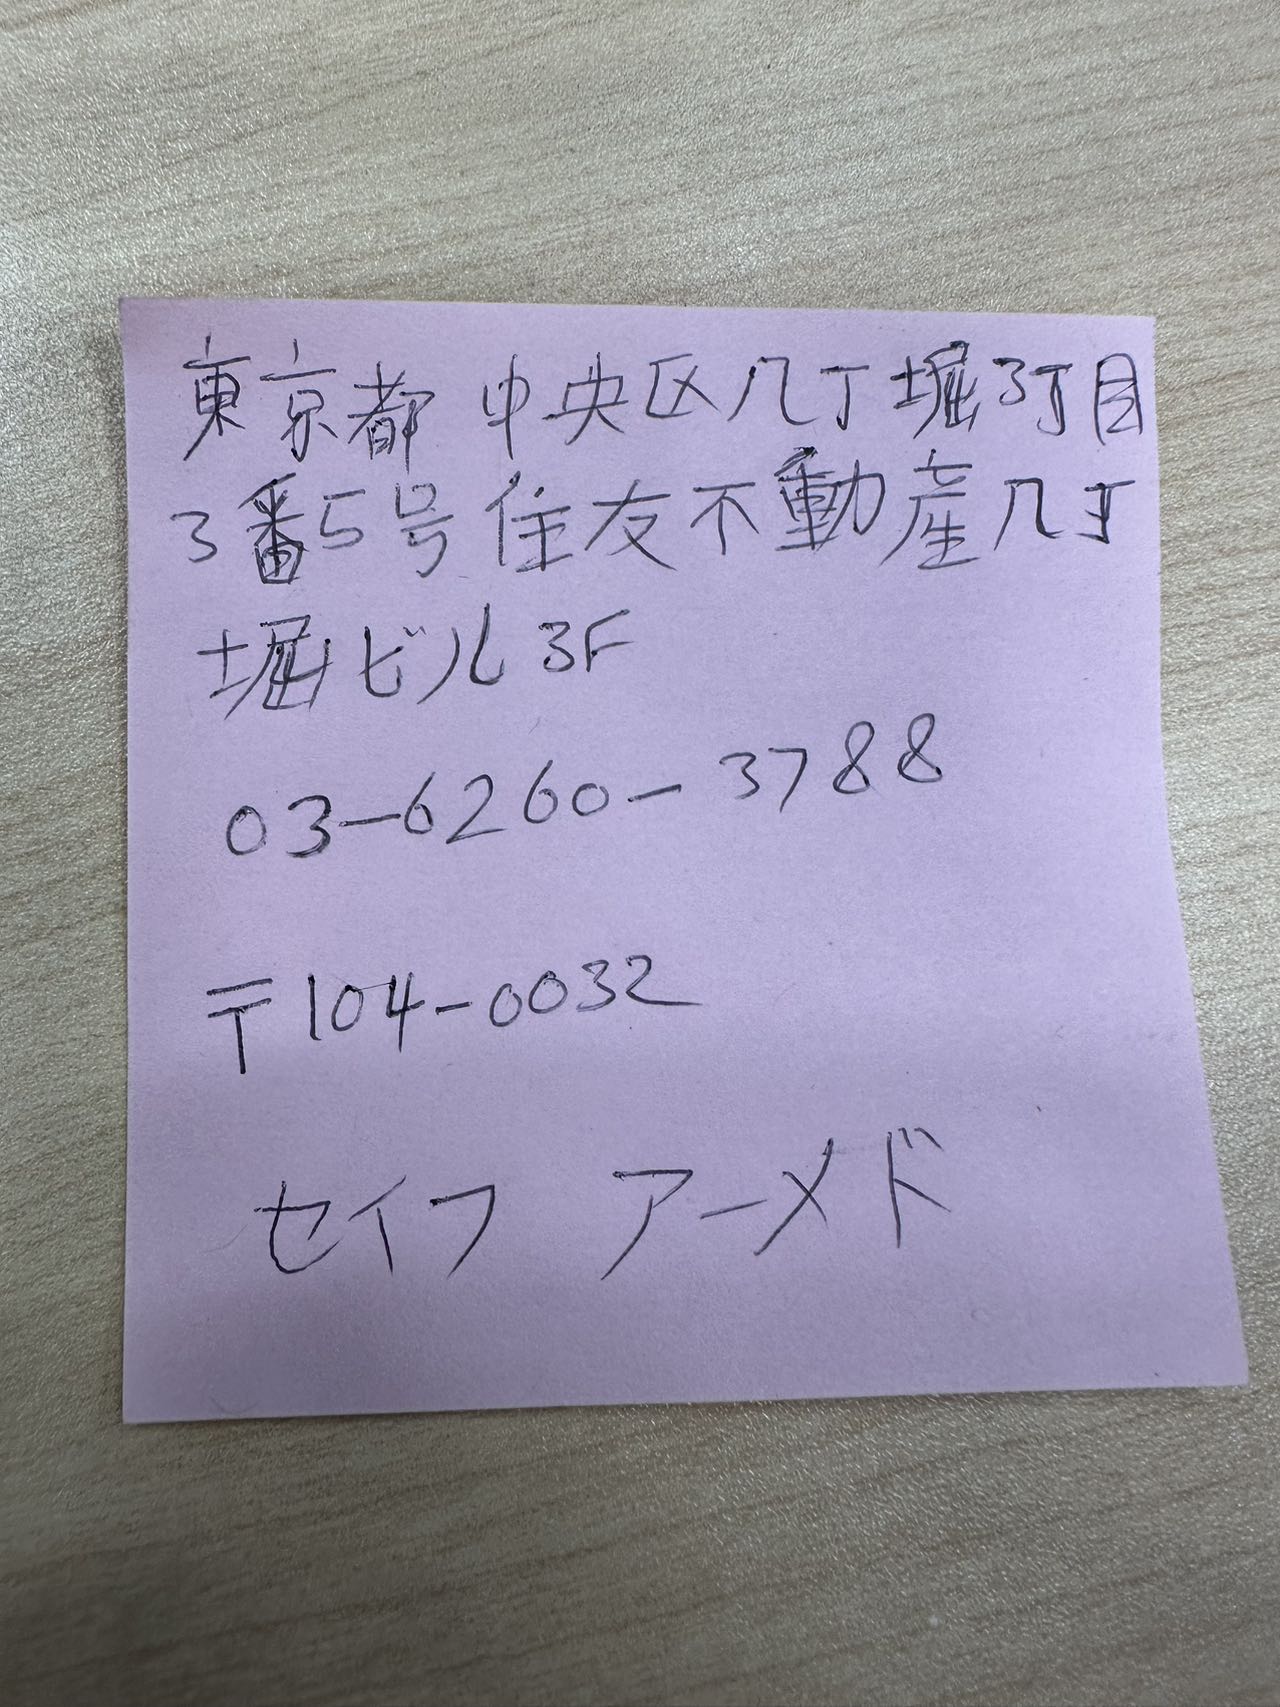 東京都 中央区八丁堀3丁目
3番5号住友不動産八丁
堀ビル3F
03-6260-3788
〒104-0032
セイフ アーメド